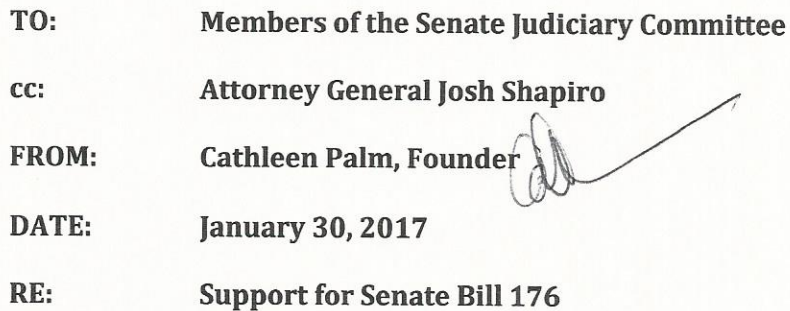 TO: Members of the Senate Judiciary Committee
cc: Attorney General Josh Shapiro
FROM: Cathleen Palm, Founder
DATE: January 30, 2017
RE: Support for Senate Bill 176